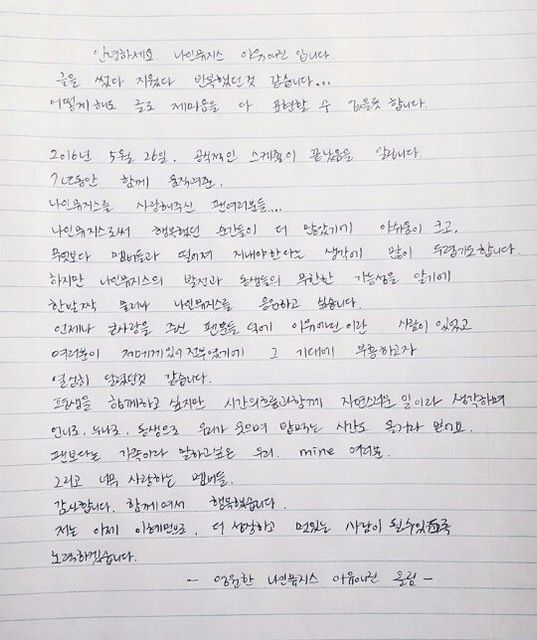 안녕하세요 나인뮤지스 이유애린 입니다.
글을 썼다 지웠다 반복했던것 같습니다...
어떻게 해도 글로 제마음을 다 표현할 수 없을듯 합니다.
2016년 5월 26일. 공식적인 스케줄이 끝났음을 알립니다.
7년동안 함께 움직여준.
나인뮤지스를 사랑해주신 팬여러분들....
나인뮤지스로써 행복했던 순간들이 더 많았기에 아쉬움이 크고,
무엇보다 멤버들과 떨어져 지내야한다는 생각에 많이 두렵기도합니다.
하지만 나인뮤지스의 발전과 동생들의 무한한 가능성을 알기에
한발짝 물러나 나인뮤지스를 응원하고 싶습니다.
언제나 큰사랑을 주신 팬분들 덕에 이유애린 이란 사람이 있었고
여러분이 제에게 있어 전부였기에 그 기대에 부흥하고자
열심히 달렸던것 같습니다.
평생을 함께하고 싶지만 시간의흐름과함께 자연스러운 일이라 생각하며
언니로, 누나로, 동생으로 우리가 웃으며 밥먹는 시간도 올거라 믿어요.
팬보다는 가족이라 말하고싶은 우리. mine 여러분.
그리고 너무 사랑하는 멤버들.
감사합니다. 함께여서 행복했습니다.
저는 이제 이혜민으로, 더 성장하고 멋있는 사람이 될수있도록
노력하겠습니다.
- 영원한 나인뮤지스 이유애린 올림 -